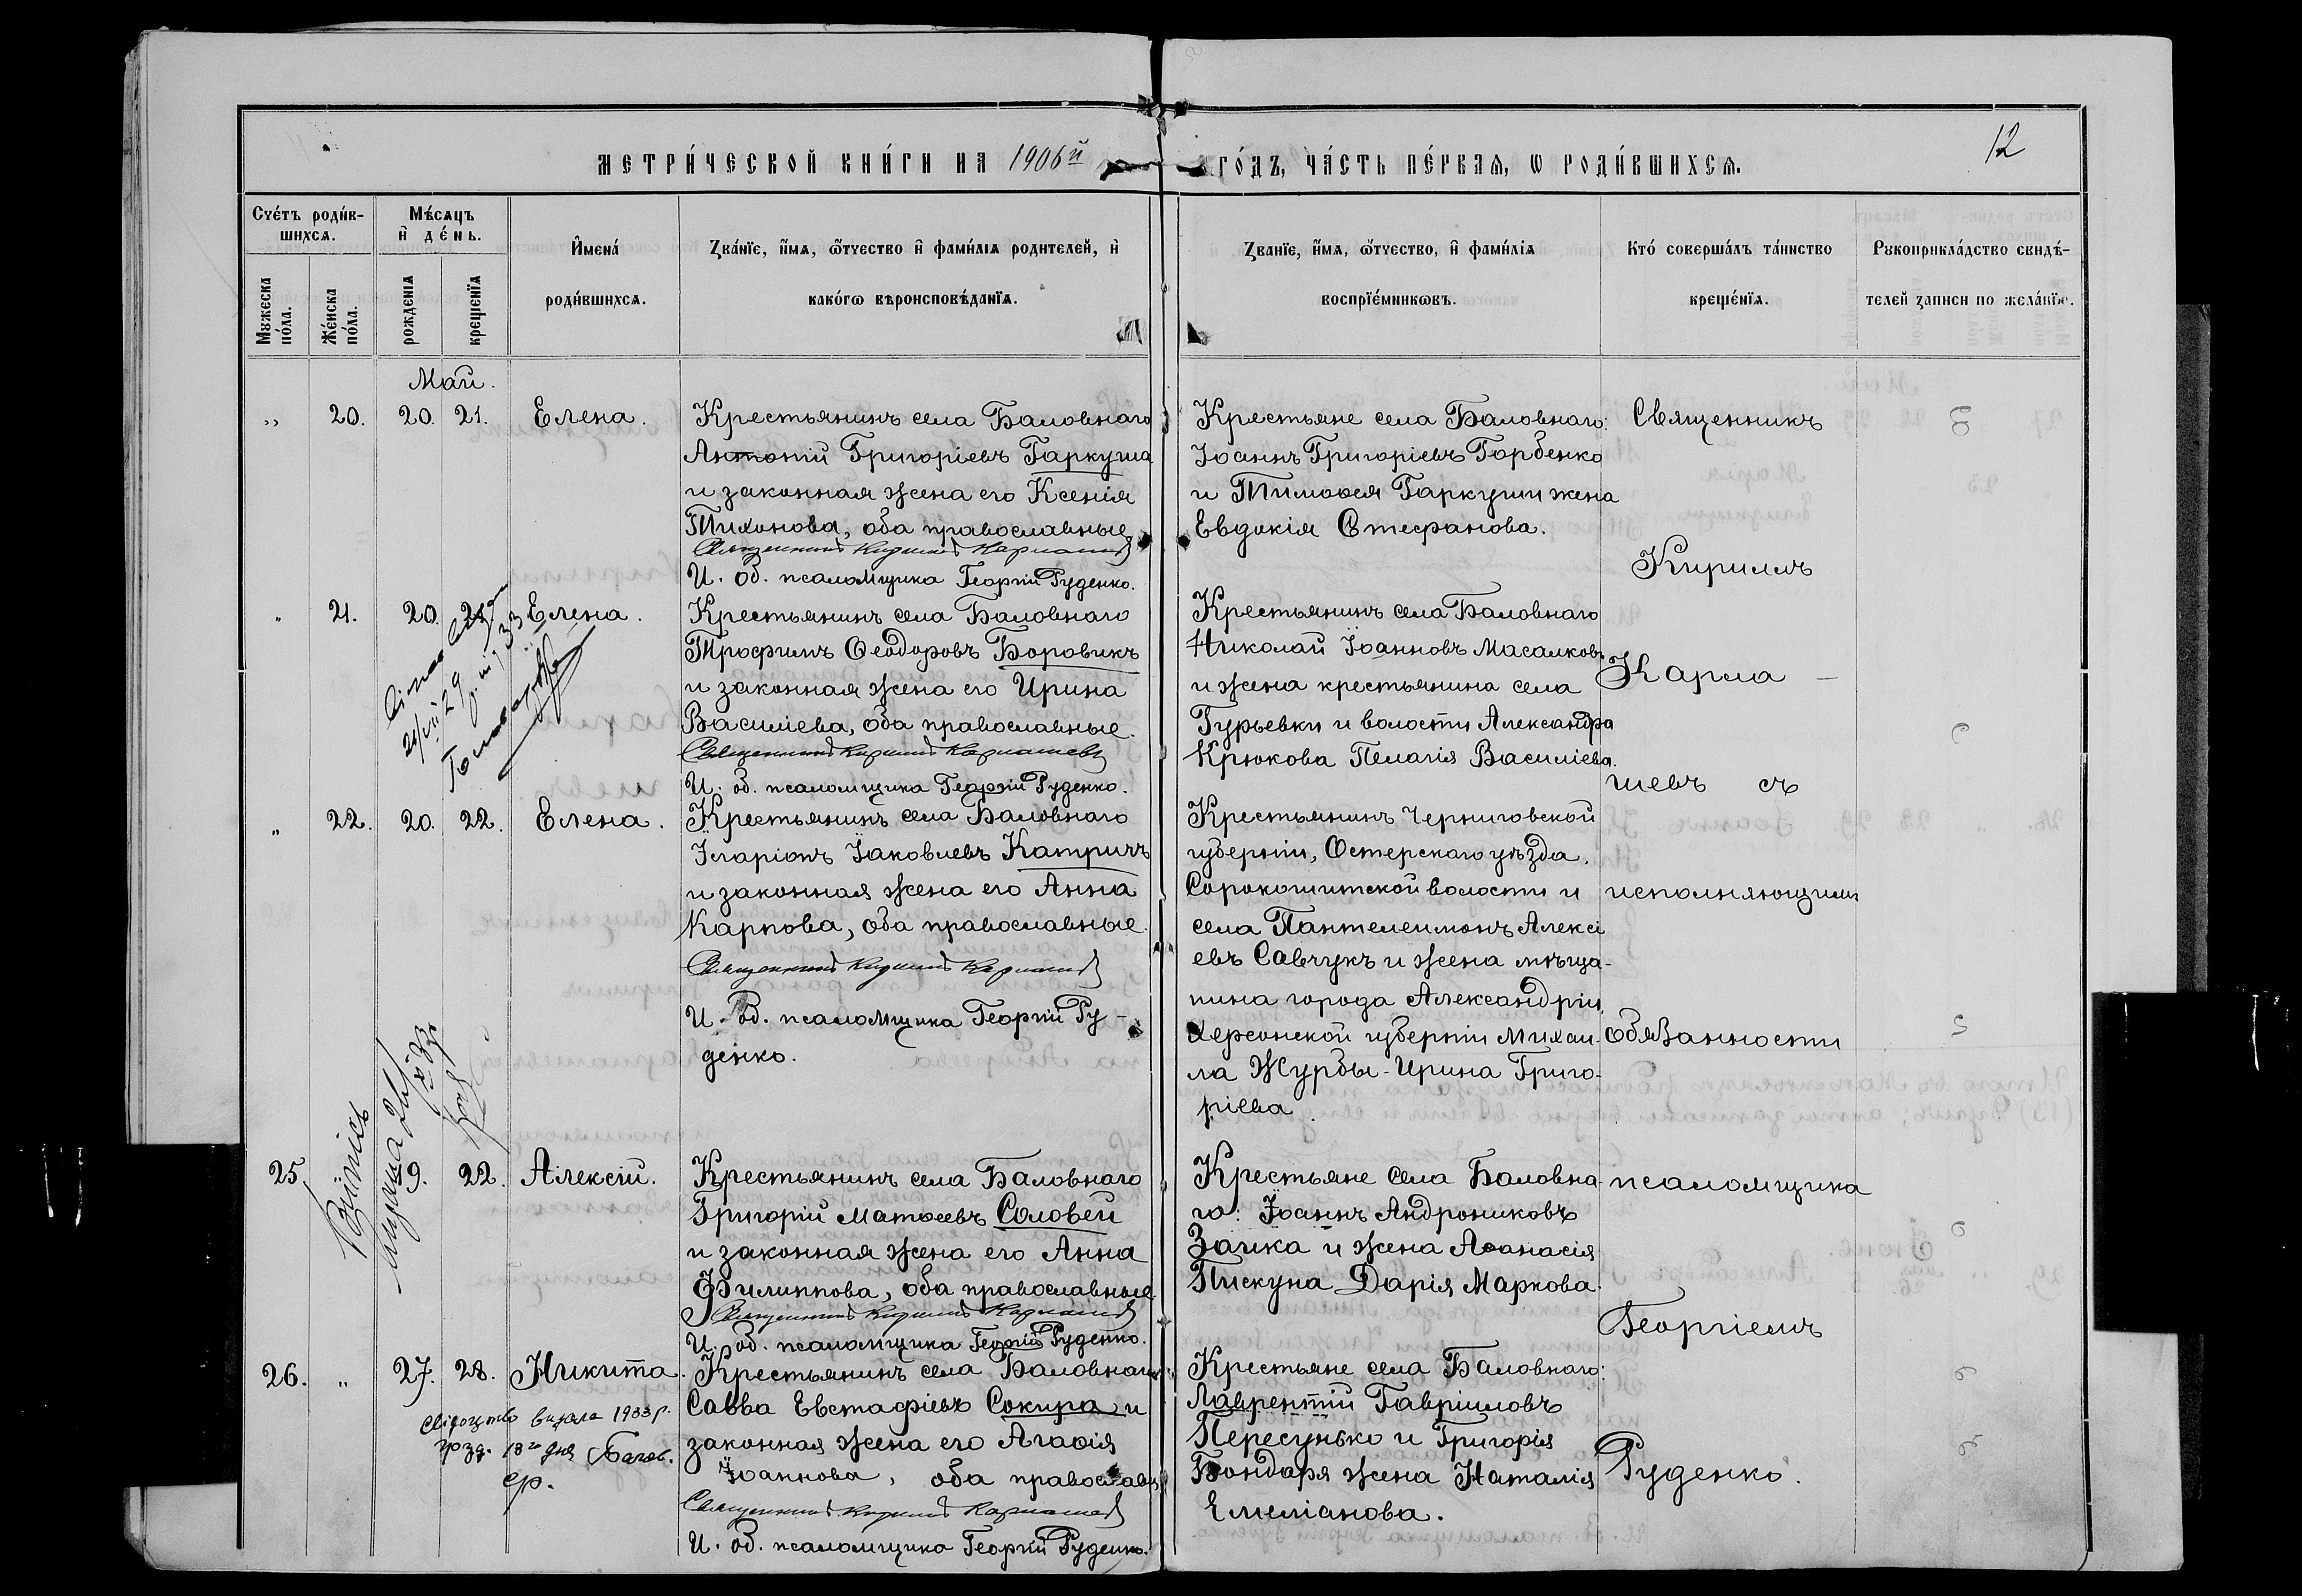 12
МЕТРИ́ЧЕСКОЙ КНИ́ГИ НА 1906й ГО́ДЪ, ЧА́СТЬ ПЕ́РВАЯ, Ѡ РОДИ́ВШИХСѦ.
Сче́тъ роди́в-
шихсѧ.
Мꙋжеска по́ла.
Же́нска по́ла.
Мѣ́сѧцъ
и҆ де́нь.
рожденїѧ
крещенїѧ
И҆мена́
роди́вшихсѧ.
Зва́нїе, и҆́мѧ, ѻ҆́тчество и҆ фами́лїѧ родителей, и҆
како́гѡ вѣроисповѣ́данїѧ.
Званїе, и҆́мѧ, ѻ҆́тчество, и҆ фами́лїѧ
воспрїе́мникѡвъ.
Кто́ соверша́лъ та́инство
креще́нїѧ.
Рꙋкоприкла́дство свидѣ́-
телей записи по жела́нїю.
Май.
„ 20. 20. 21. Елена.
Крестьянинъ села Баловнаго
Антоній Григоріевъ Гаркуша
и законная жена его Ксенія
Тихонова, оба православные.
Священникъ Кириллъ Кармашевъ
И. об. псаломщика Георгій Руденко.
Крестьяне села Баловнаго:
Іоаннъ Григоріевъ Горбенко
и Тимоѳея Гаркуши жена
Евдокія Стефанова.
Священникъ
Кириллъ
„ 21. 20. 21. Елена.
Крестьянинъ села Баловнаго
Трофимъ Ѳеодоровъ Боровикъ
и законная жена его Ирина
Василіева, оба православные.
Священникъ Кириллъ Кармашевъ
И. об. псаломщика Георгій Руденко.
Крестьянинъ села Баловнаго
Николай Іоанновъ Масалковъ
и жена крестьянина села
Гурьевки и волости Александра
Крюкова Пелагія Василіева.
Карма-
шевъ съ
„ 22. 20. 22. Елена.
Крестьянинъ села Баловнаго
Іларіонъ Іаковлевъ Катричъ
и законная жена его Анна
Карпова, оба православные.
Священникъ Кириллъ Кармашевъ
И. об. псаломщика Георгій Ру-
денко.
Крестьянинъ Черниговской
губерніи, Остерскаго уѣзда,
Сорокошитской волости и
села Пантелеимонъ Алексі
евъ Савчукъ и жена мѣща-
нина города Александріи,
Херсонской губерніи Михаи-
ла Журбы-Ирина Григо-
ріева.
исполняющимъ
обязанности
25 19. 22. Алексій.
Крестьянинъ села Баловнаго
Григорій Матѳеевъ Соловей
и законная жена его Анна
Филиппова, оба православные.
Священникъ Кириллъ Кармашевъ
И. об. псаломщика Георгій Руденко.
Крестьяне села Баловна-
го: Іоаннъ Андрониковъ
Заика и жена Аѳанасія
Пискуна Дарія Маркова.
псаломщика
Георгіемъ
26. „ 27. 28. Никита.
Крестьянинъ села Баловнаго
Савва Евстафіевъ Сокира и
законная жена его Агаѳія
Іоаннова, оба православн
Священникъ Кириллъ Кармашевъ
И. об. псаломщика Георгій Руденко.
Крестьяне села Баловнаго:
Лаврентій Гавріиловъ
Пересунько и Григорія
Бондаря жена Наталія
Емеліанова.
Руденко.
видала 1933 р.